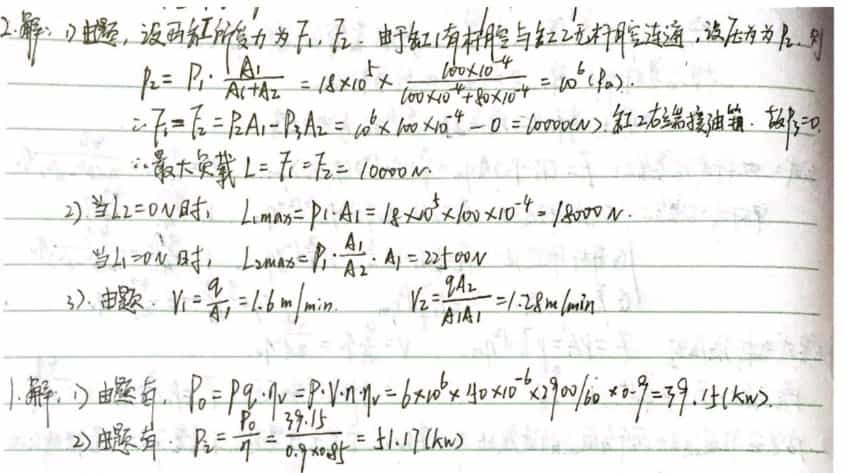 2.解: 1)由题, 设两缸所受力为F₁, F₂. 由于缸1有杆腔与缸2无杆腔连通, 设压力为P₂. 则
P₂ = P₁·A₁/(A₁+A₂) = 18×10⁵×(100×10⁻⁴)/(100×10⁻⁴+80×10⁻⁴) = 10⁶(Pa).
∴F₁=F₂=P₂A₁-P₃A₂=10⁶×100×10⁻⁴-0=10000(N). 缸2右端接油箱. 故P₃=0.
∴最大负载 L=F₁=F₂=10000N.
2)当L2=0N时, L₁max=P₁·A₁=18×10⁵×100×10⁻⁴=18000N.
当L₁=0N时, L₂max=P₁·A₁/A₂·A₁=22500N
3).由题. V₁=q/A₁=1.6m/min. V₂=qA₂/A₁A₁=1.28m/min
1.解, 1)由题有, P₀=Pq.ηv=P·V·n·ηv=6×10⁶×40×10⁻⁶×2900/60×0.9=39.15(kw).
2)由题有. P₂=P₀/η=39.15/0.9×0.85=51.17(kw)